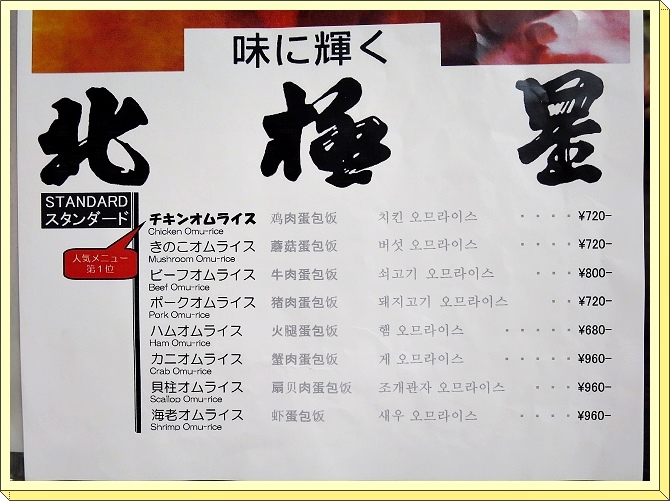 味に輝く
北極星
STANDARD
スタンダード
人気メニュー
第1位
チキンオムライス 鸡肉蛋包饭 치킨 오므라이스 ・・・・¥720-
Chicken Omu-rice
きのこオムライス 蘑菇蛋包饭 버섯 오므라이스 ・・・・¥720-
Mushroom Omu-rice
ビーフオムライス 牛肉蛋包饭 쇠고기 오므라이스 ・・・¥800-
Beef Omu-rice
ポークオムライス 猪肉蛋包饭 돼지고기 오므라이스 ・・・¥720-
Pork Omu-rice
ハムオムライス 火腿蛋包饭 햄 오므라이스 ・・・・・¥680-
Ham Omu-rice
カニオムライス 蟹肉蛋包饭 게 오므라이스 ・・・・・¥960-
Crab Omu-rice
貝柱オムライス 扇贝肉蛋包饭 조개관자 오므라이스 ・・・¥960-
Scallop Omu-rice
海老オムライス 虾蛋包饭 새우 오므라이스 ・・・・¥960-
Shrimp Omu-rice